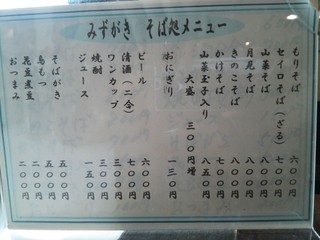 みずがき そば処メニュー
もりそば 六〇〇円
セイロそば(ざる) 七〇〇円
山菜そば 八〇〇円
月見そば 八〇〇円
きのこそば 八〇〇円
かけそば 七〇〇円
山菜玉子入り 八五〇円
大盛 三〇〇円増
おにぎり 一三〇円
ビール 六〇〇円
清酒(二合) 七〇〇円
ワンカップ 三〇〇円
焼酎 三〇〇円
ジュース 一五〇円
そばがき 五〇〇円
鳥もつ 五〇〇円
花豆煮豆 二〇〇円
おつまみ 二〇〇円